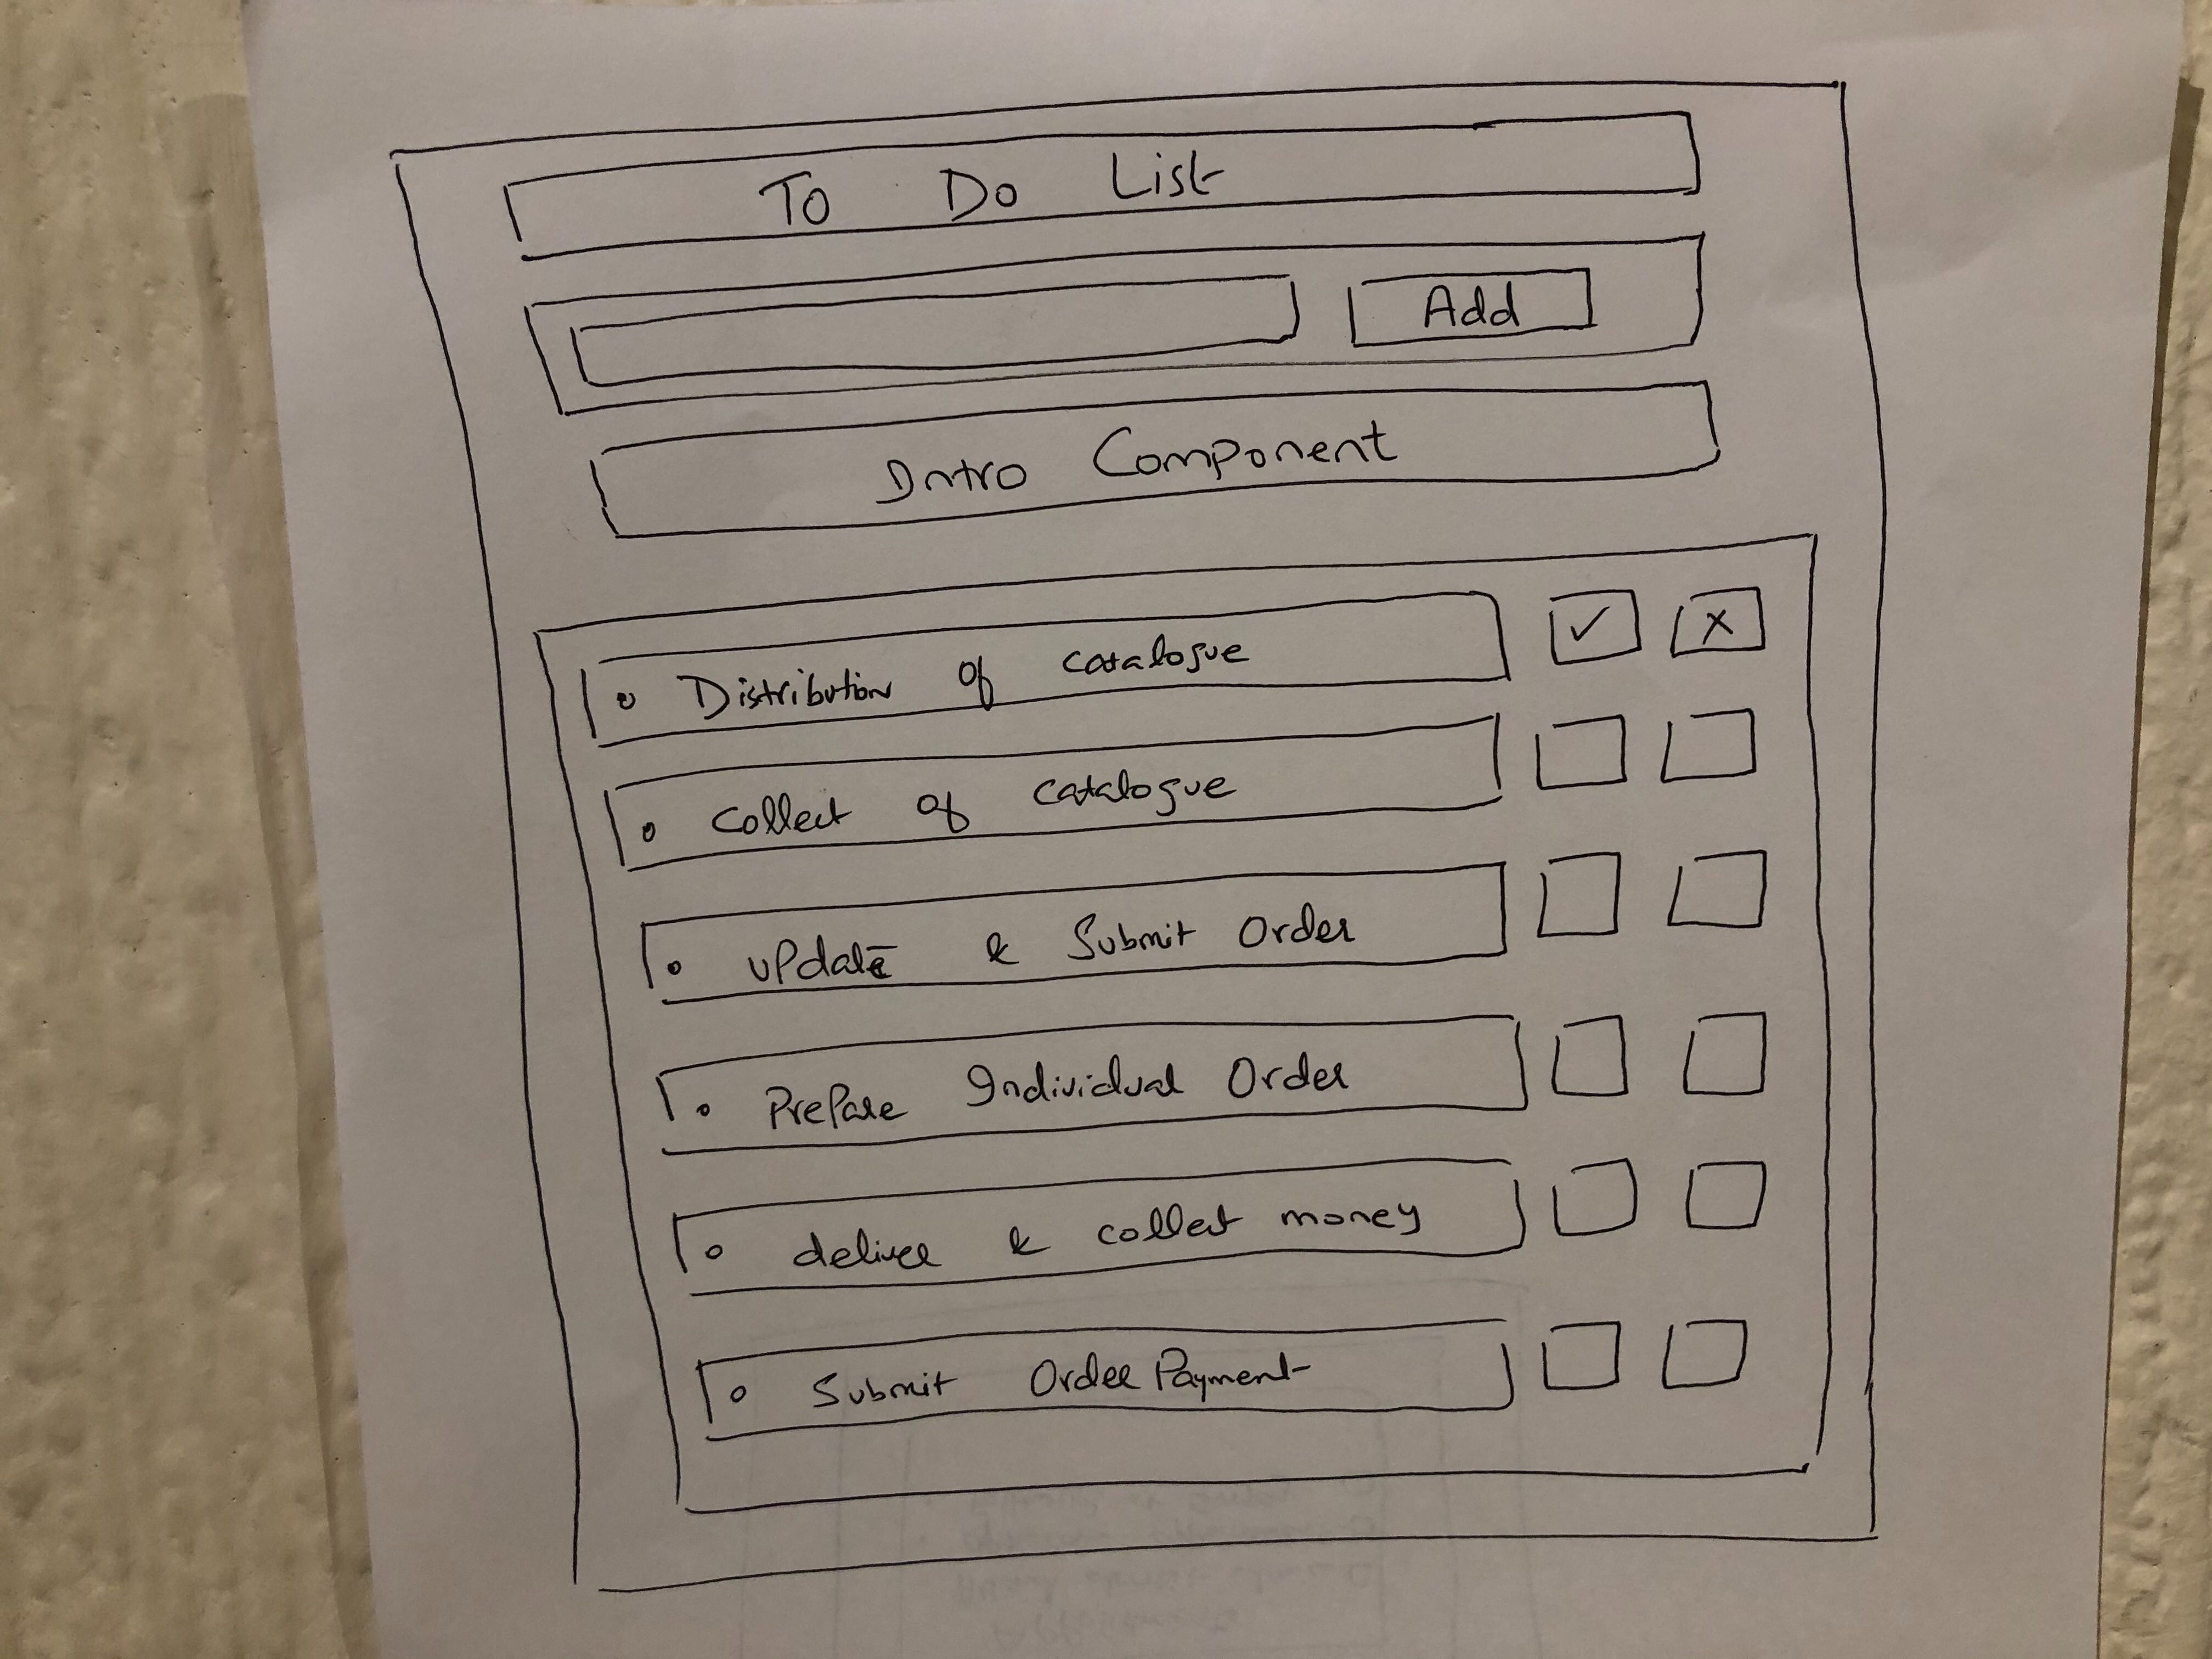 To Do List
Add
Intro Component
Distribution of catalogue ✓ x
Collect of catalogue
update & Submit Order
Prepare Individual Order
deliver & collect money
Submit Order Payment